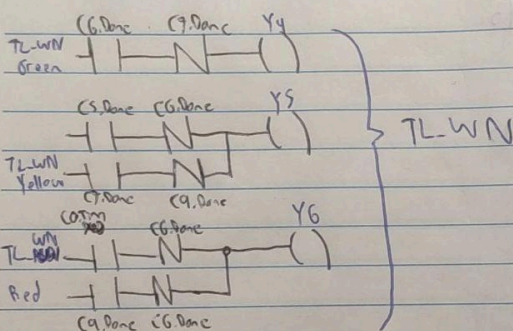 C6.Done C9.Done Y4
TL-WN
Green
C5.Done C6.Done Y5
TL-WN
Yellow
C7.Done C9.Done
TL-WN
C0.Tm C6.Done Y6
WN
TL-
Red
C9.Done C6.Done